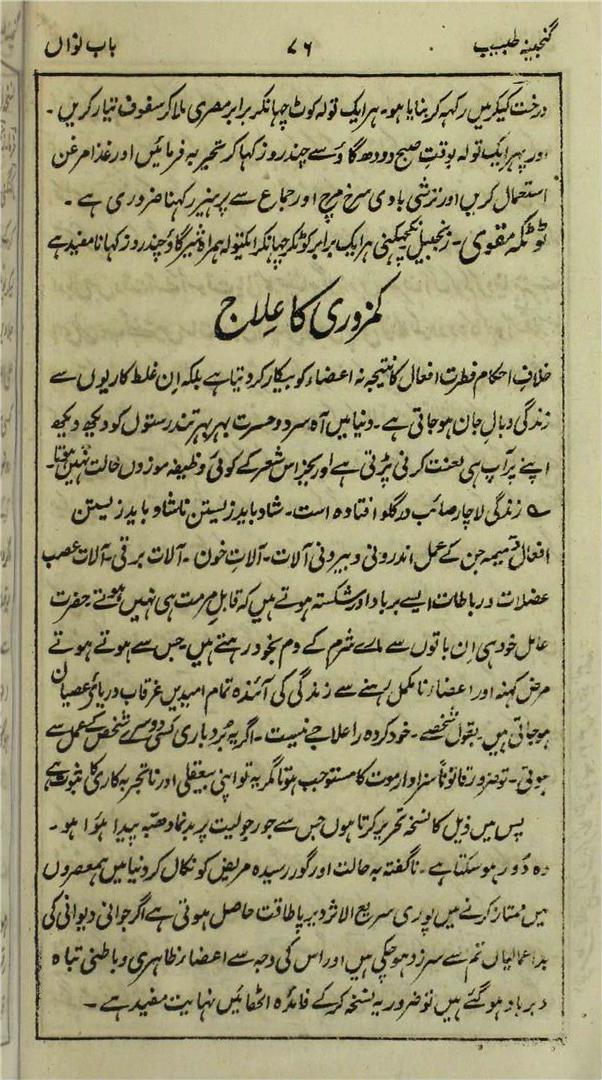 گنجینہ طبیب ۷۶ باب نواں
درخت کیکر میں رکہہ کر بنایا ہو۔ ہر ایک تولہ کوٹ چہانکر برابر مصری ملا کر سفوف تیار کریں۔
اور پہر ایک تولہ بوقتِ صبح دودھ گاؤ سے چند روز کہا کر تجربہ فرمائیں اور غذا مرغن
استعمال کریں اور ترشی بادی سرخ مرچ اور جماع سے پرہیز رکہنا ضروری ہے۔
ٹوٹکہ مقوی۔ زنجبیل نکچہکنی ہر ایک برابر کوٹکر چہانکر ایکتولہ ہمراہ شیر گاؤ چند روز کہانا مفید ہے
کمزوری کا علاج
خلاف احکام فطرت افعال کا نتیجہ نہ اعضاء کو بیکار کر دیتا ہے بلکہ اِن غلط کاریوں سے
زندگی وبالِ جان ہو جاتی ہے۔ دنیا میں آہ سرد و حسرت بہر بہر تندرستوں کو دیکھ دیکھ
اپنے پر آپ ہی لعنت کرنی پڑتی ہے اور بجز اس شعر کے کوئی وظیفہ موزوں حالت نہیں ہوتا۔
؎ زندگی لاچار صائب در گلو افتادہ است۔ شاد باید زیستن ناشاد باید زیستن
افعال قبیحہ جن کے عمل اندرونی و بیرونی آلات۔ آلاتِ خون۔ آلات برقی۔ آلات عصب
عضلات و رباطات ایسے برباد اور شکستہ ہوتے ہیں کہ قابل مرمت ہی نہیں ہوتے حضرت
عامل خود ہی اِن باتوں سے مارے شرم کے دم بخود رہتے ہیں۔ جس سے ہوتے ہوتے
مرض کہنہ اور اعضاء نامکمل رہنے سے زندگی کی آئندہ تمام امیدیں غرقاب دریائے عصیان
ہو جاتی ہیں۔ بقول شخصے۔ خود کردہ را علاجے نیست۔ اگر یہ بُردباری کسی دوسرے شخص کے عمل سے
ہوتی۔ تو ضرور قانوناً سزاوار موت کا مستوجب ہوتا مگر یہ تو اپنی بیعقلی اور ناتجربہ کاری کا ثبوت ہے
پس میں ذیل کا نسخہ تحریر کرتا ہوں جس سے جو رجولیت پر بدنما دھبہ پیدا ہؤا ہو۔
وہ دُور ہو سکتا ہے۔ ناگفتہ بہ حالت اور گور رسیدہ مریض کو نکال کر دنیا میں ہمعصروں
میں ممتاز کرنے میں پوری سریع الاثر دیرپا طاقت حاصل ہوتی ہے اگر جوانی دیوانی کی
بد اعمالیاں تم سے سرزد ہو چکی ہیں اور اس کی وجہ سے اعضاء ظاہری و باطنی تباہ
و برباد ہو گئے ہیں تو ضرور یہ نسخہ کر کے فائدہ اٹھائیں نہایت مفید ہے۔